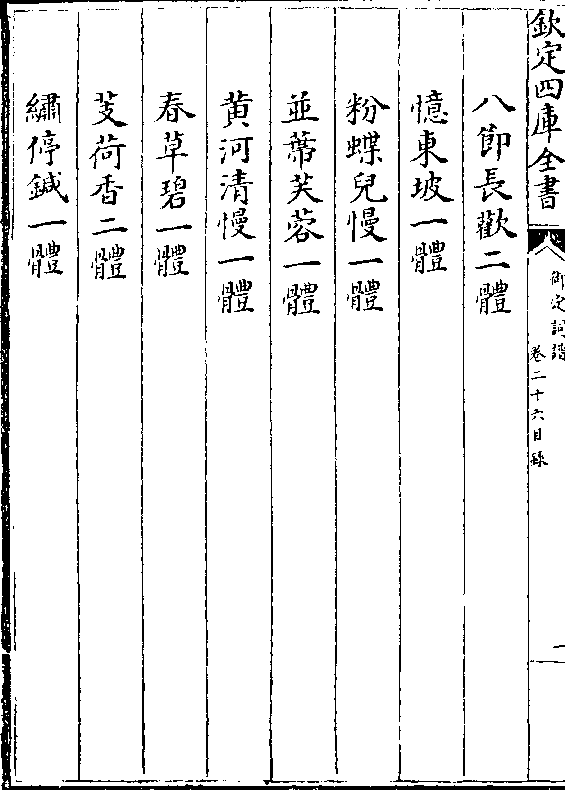 欽定四庫全書
御定詞譜
卷二十六目錄
八節長歡二體
憶東坡一體
粉蝶兒慢一體
並蔕芙蓉一體
黃河清慢一體
春草碧一體
芰荷香二體
繡停鍼一體